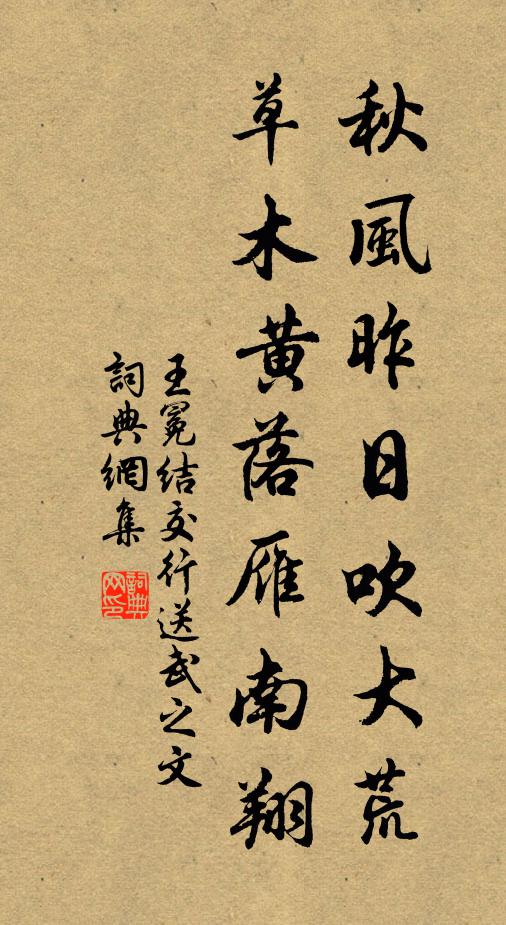 秋風昨日吹大荒
草木黃落雁南翔
王冕結交行送武之文
詞典網集
詞典網印